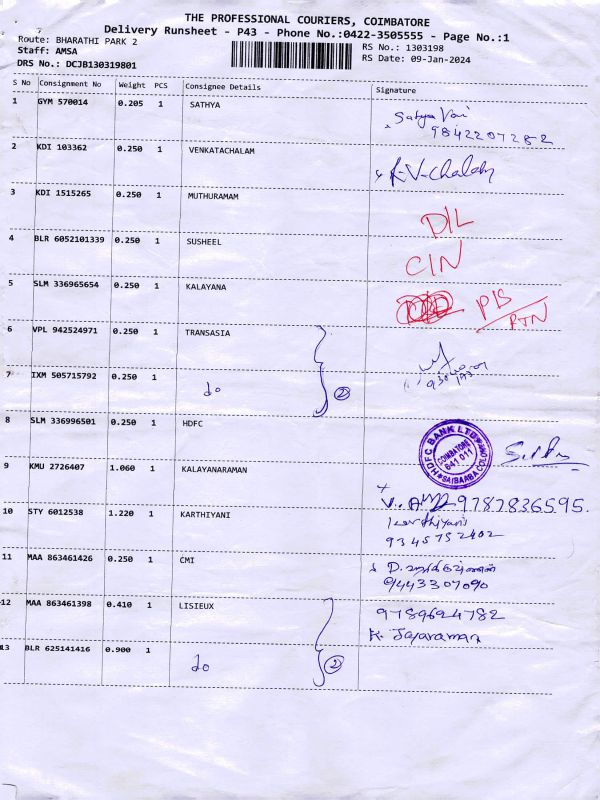 THE PROFESSIONAL COURIERS, COIMBATORE
Delivery Runsheet - P43 - Phone No.:0422-3505555 - Page No.:1
Route: BHARATHI PARK 2
Staff: AMSA
DRS No.: DCJB130319801
RS No.: 1303198
RS Date: 09-Jan-2024
S No Consignment No Weight PCS Consignee Details Signature
1 GYM 570014 0.205 1 SATHYA Sathya
9842207282
2 KDI 103362 0.250 1 VENKATACHALAM K-V-Chalam
3 KDI 1515265 0.250 1 MUTHURAMAM D/L
4 BLR 6052101339 0.250 1 SUSHEEL C/N
5 SLM 336965654 0.250 1 KALAYANA P/S
RTN
6 VPL 942524971 0.250 1 TRANSASIA
7 IXM 505715792 0.250 1 do 2
8 SLM 336996501 0.250 1 HDFC
HDFC BANK LTD
COIMBATORE
641 011
SAIBAABA COLONY
9 KMU 2726407 1.060 1 KALAYANARAMAN 9787836595.
10 STY 6012538 1.220 1 KARTHIYANI Karthiyani
9345752402
11 MAA 863461426 0.250 1 CMI
9443307090
12 MAA 863461398 0.410 1 LISIEUX 9789624782
K. Jayaraman
13 BLR 625141416 0.900 1 do 2